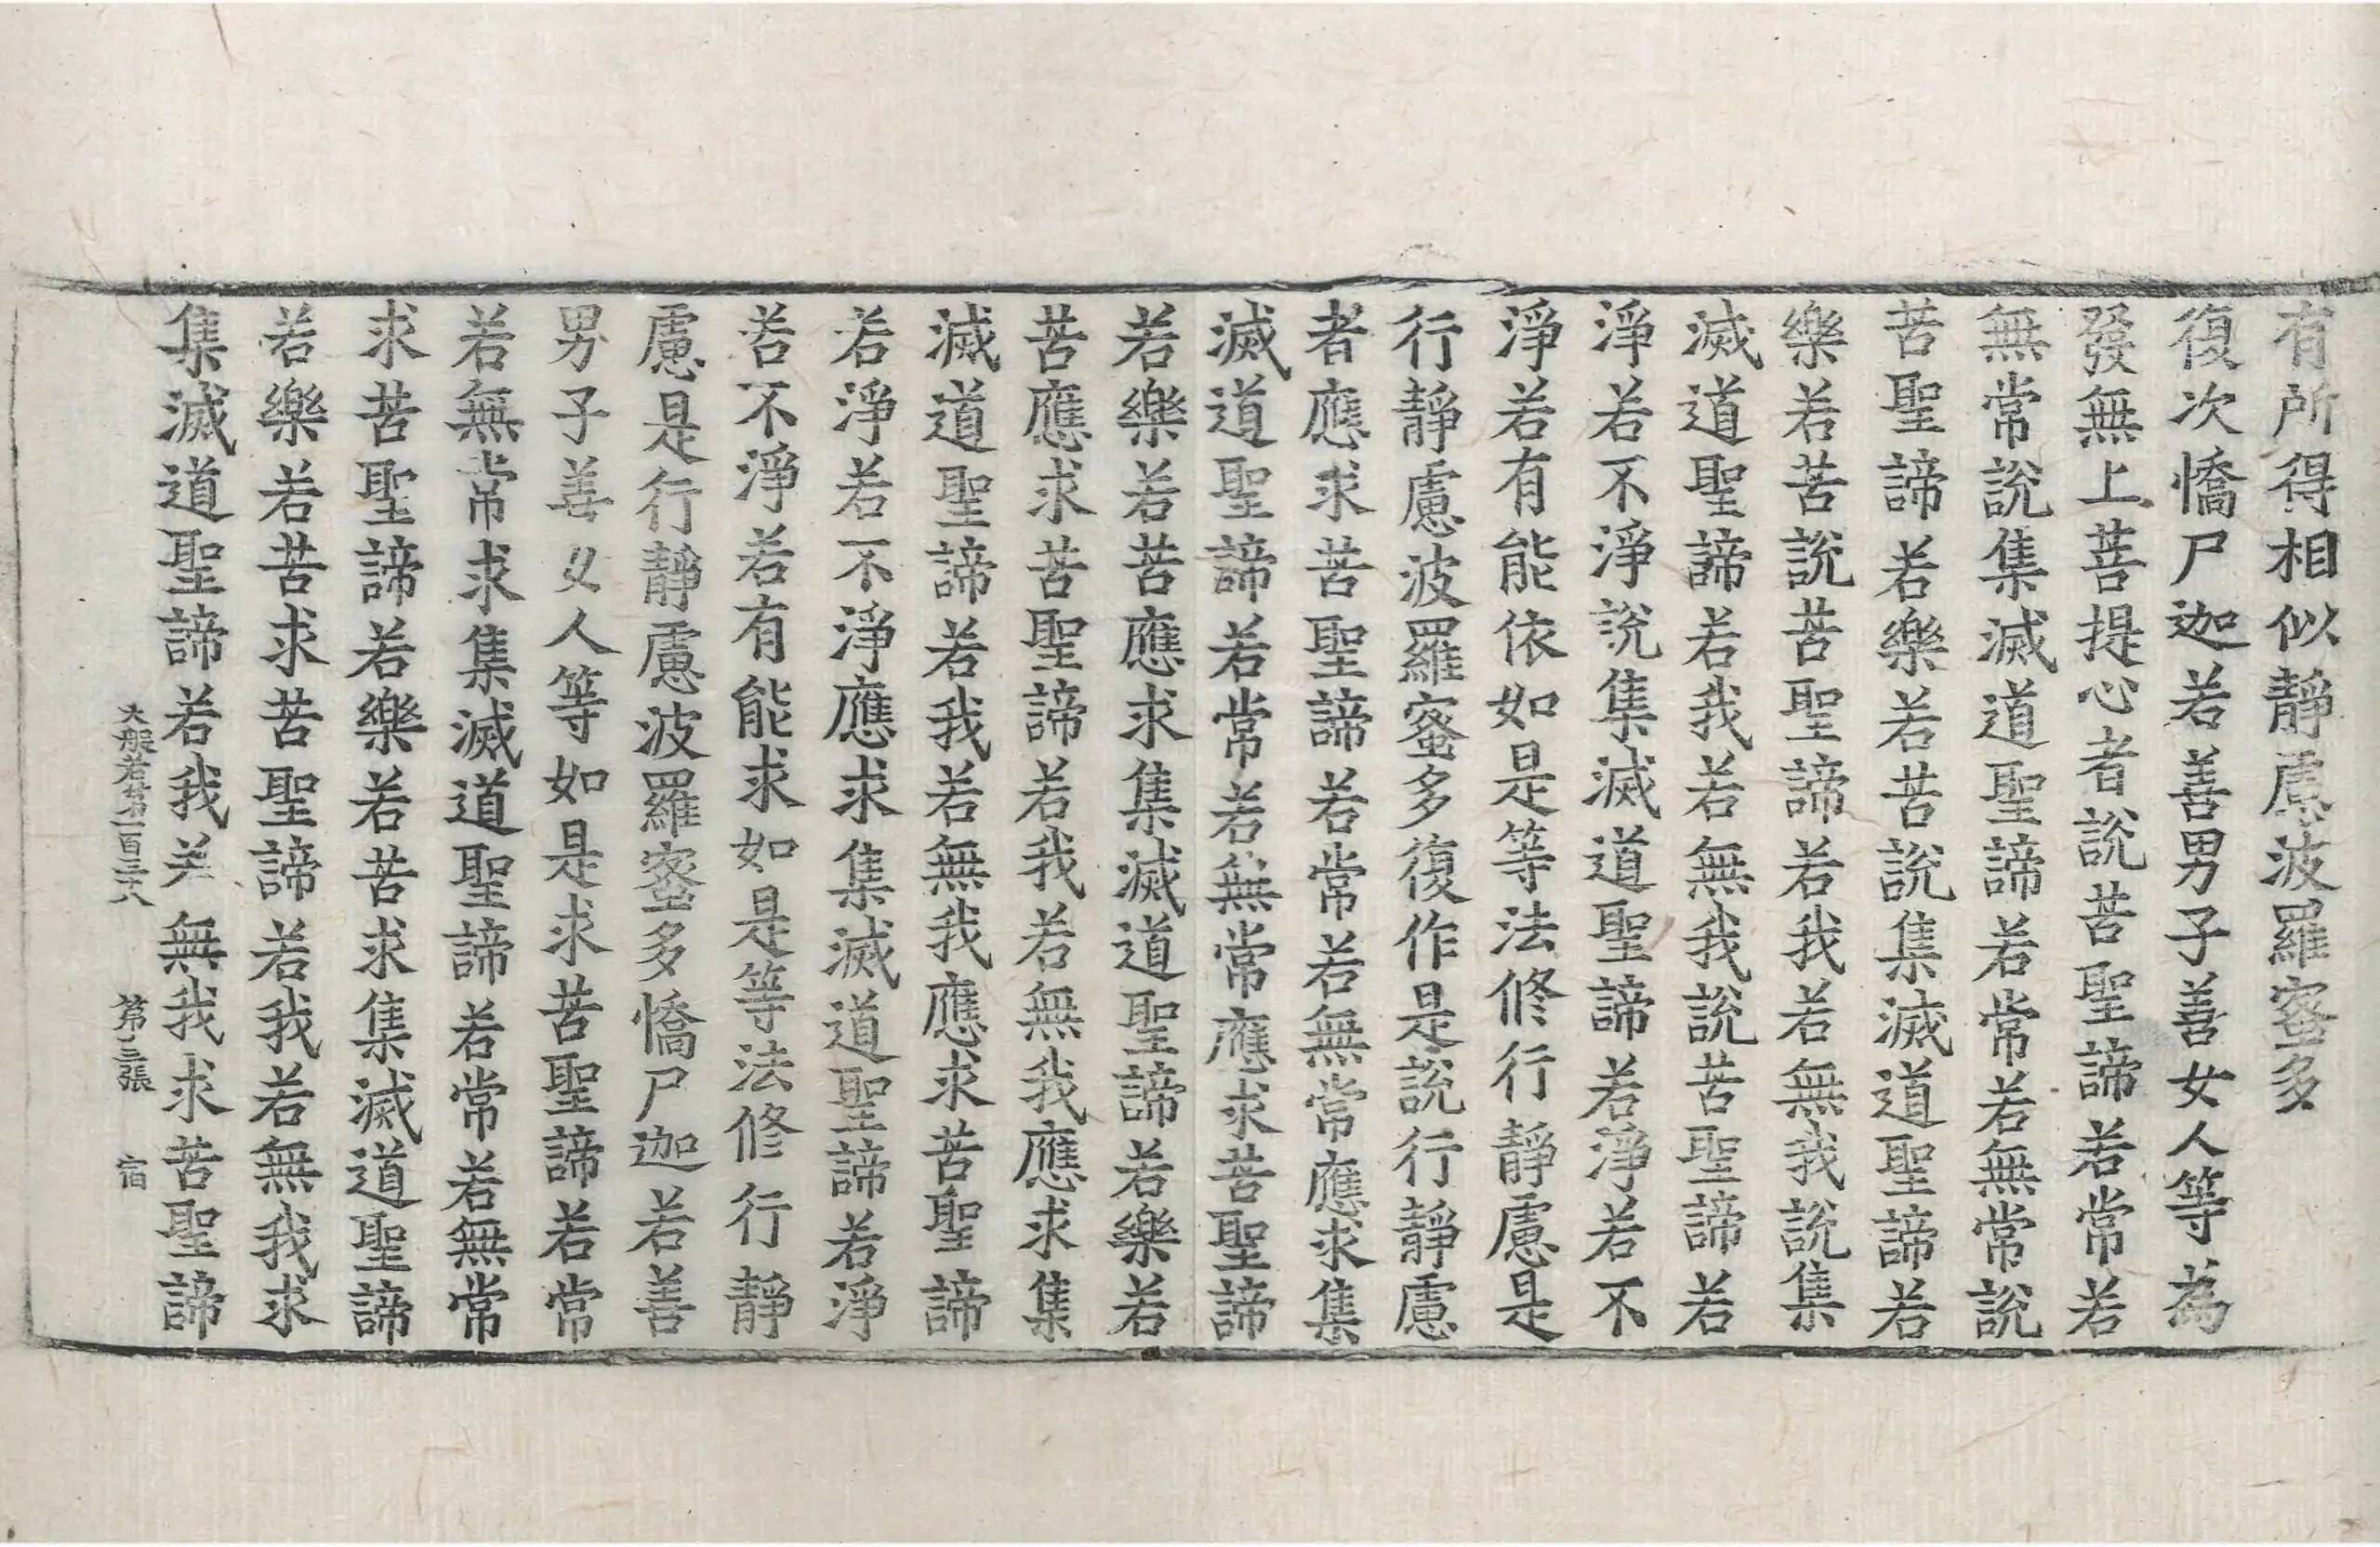 有所得相似靜慮波羅蜜多
復次憍尸迦若善男子善女人等為
發無上菩提心者說苦聖諦若常若
無常說集滅道聖諦若常若無常說
苦聖諦若樂若苦說集滅道聖諦若
樂若苦說苦聖諦若我若無我說集
滅道聖諦若我若無我說苦聖諦若
淨若不淨說集滅道聖諦若淨若不
淨若有能依如是等法修行靜慮是
行靜慮波羅蜜多復作是說行靜慮
者應求苦聖諦若常若無常應求集
滅道聖諦若常若無常應求苦聖諦
若樂若苦應求集滅道聖諦若樂若
苦應求苦聖諦若我若無我應求集
滅道聖諦若我若無我應求苦聖諦
若淨若不淨應求集滅道聖諦若淨
若不淨若有能求如是等法修行靜
慮是行靜慮波羅蜜多憍尸迦若善
男子善女人等如是求苦聖諦若常
若無常求集滅道聖諦若常若無常
求苦聖諦若樂若苦求集滅道聖諦
若樂若苦求苦聖諦若我若無我求
集滅道聖諦若我若無我求苦聖諦
大般若第一百三十八 第三張 宿